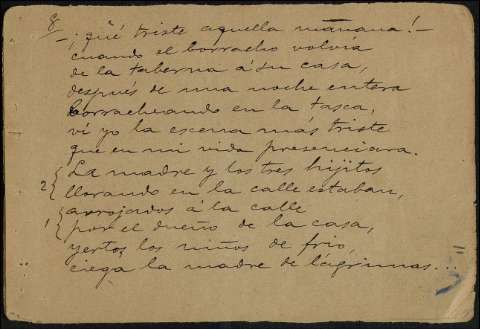 8/
—¡qué triste aquella mañana!—
cuando el borracho volvía
de la taberna á su casa,
después de una noche entera
borracheando en la tasca,
ví yo la escena más triste
que en mi vida presenciara.
La madre y los tres hijitos
2 { llorando en la calle estaban,
arrojados á la calle
1 { por el dueño de la casa,
yertos los niños de frio,
ciega la madre de lágrimas...